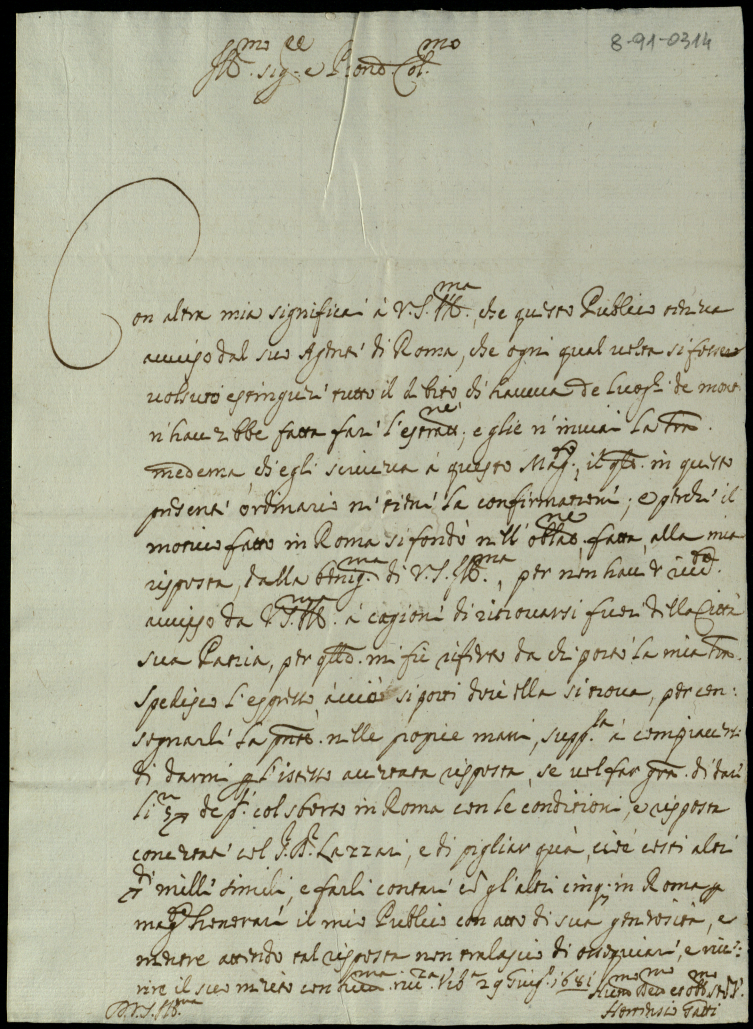 8-91-0314
Ill.mo sig.re e Pron Col.mo
Con altra mia significai à V.S. Ill.ma, che questo Publico teneva
avviso dal suo Agente di Roma, che ogni qual volta si fosse
voluto estinguere tutto il debito di haveva de luoghi de monti
n'haverebbe fatta fare l'estratt.ne; e glie n'inviai la
medema, ch'egli scriveva à questo Mag.to, il q.le in questo
presente ordinario ne tiene la confirmatione; e perche il
motivo fatto in Roma si fondò nell' oblat.ne fatta, alla mia
risposta, dalla benig. di V.S. Ill.ma, per non haver
avviso da V.S. Ill.ma à cagione di ritrovarsi fuori della Città
sua Patria, per q.to mi fù riferto da chi portò la mia
Spedisco l'espresso, acciò si porti dove ella si trova, per con:
segnarle la pnte. nelle proprie mani, supp.la à compiacersi
di darmi p l'istesso accertata risposta, se vol far gra. di dare
li de p.i col sborso in Roma con le conditioni, e risposta
concertate col Lazzari, e di pigliar quà, cioè costì altri
mille simili, e farli contare gl'altri cinq. in Roma p
honorare il mio Publico con atto di sua generosità, e
mentre attendo tal risposta non tralascio di ossequiare, e rive:
rire il suo merito con riv.za Vit.a 29 Giug.o 1681
D.V.S. Ill.ma Dev.mo et obb.mo
Gatti